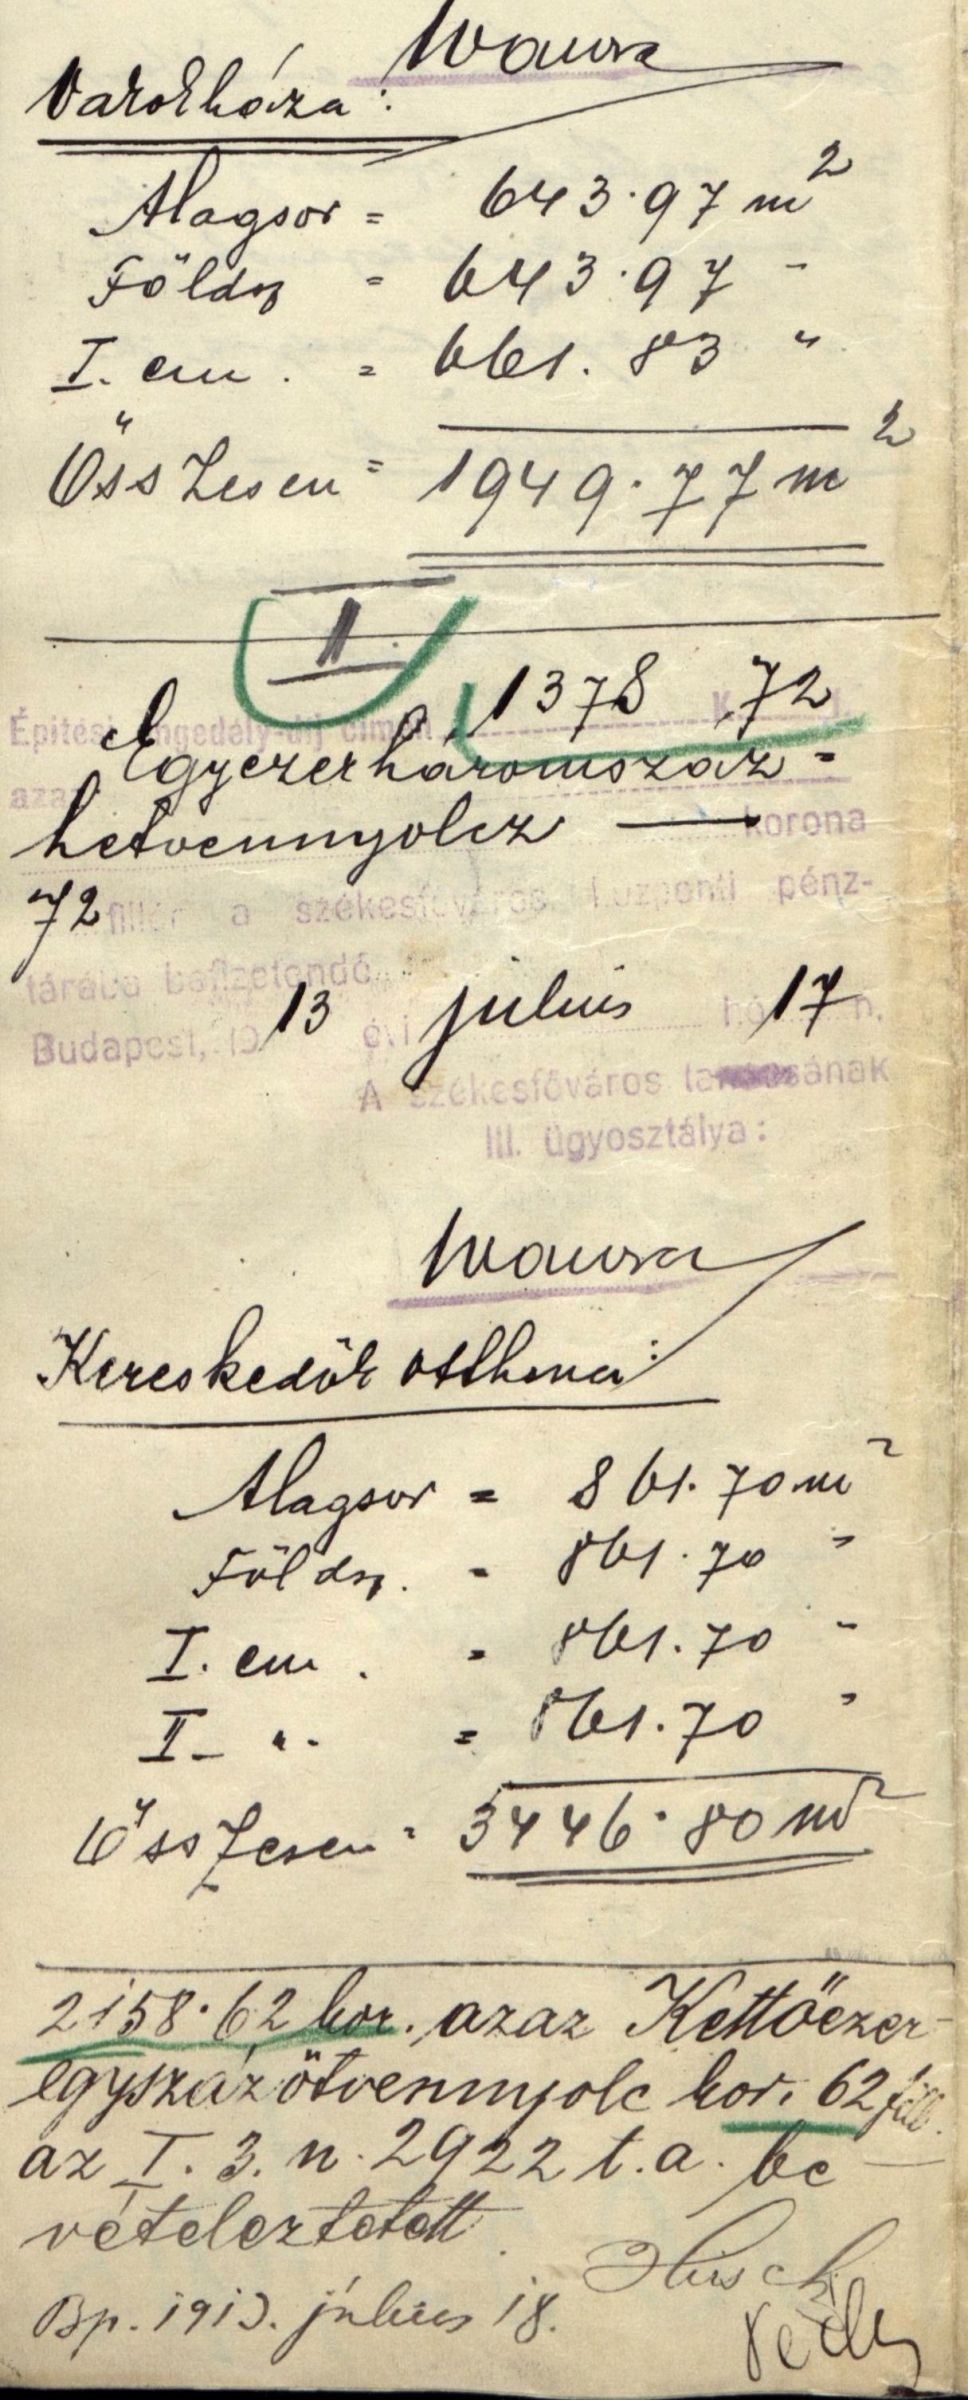 Wawra
Városháza:
Alagsor = 643.97 m²
Földsz = 643.97 "
I. em. = 661.83 "
Összesen = 1949.77 m²
II.
Építési engedély-díj címén 1378 K 72 f.
azaz Egyezerháromszáz-
hetvennyolcz — korona
72 fillér a székesfőváros központi pénz-
tárába befizetendő.
Budapest, 1913 évi július hó 17 n.
A székesfőváros tanácsának
III. ügyosztálya:
Wawra
Kereskedők otthona:
Alagsor = 861.70 m²
Földsz. = 861.70 "
I. em. = 861.70 "
II. ". = 861.70 "
Összesen = 3446.80 m²
2158.62 kor. azaz Kettőezer-
egyszázötvennyolc kor. 62 fill.
az I. 3. n. 2922 t.a. be
vételeztetett.
Bp. 1913. július 18.